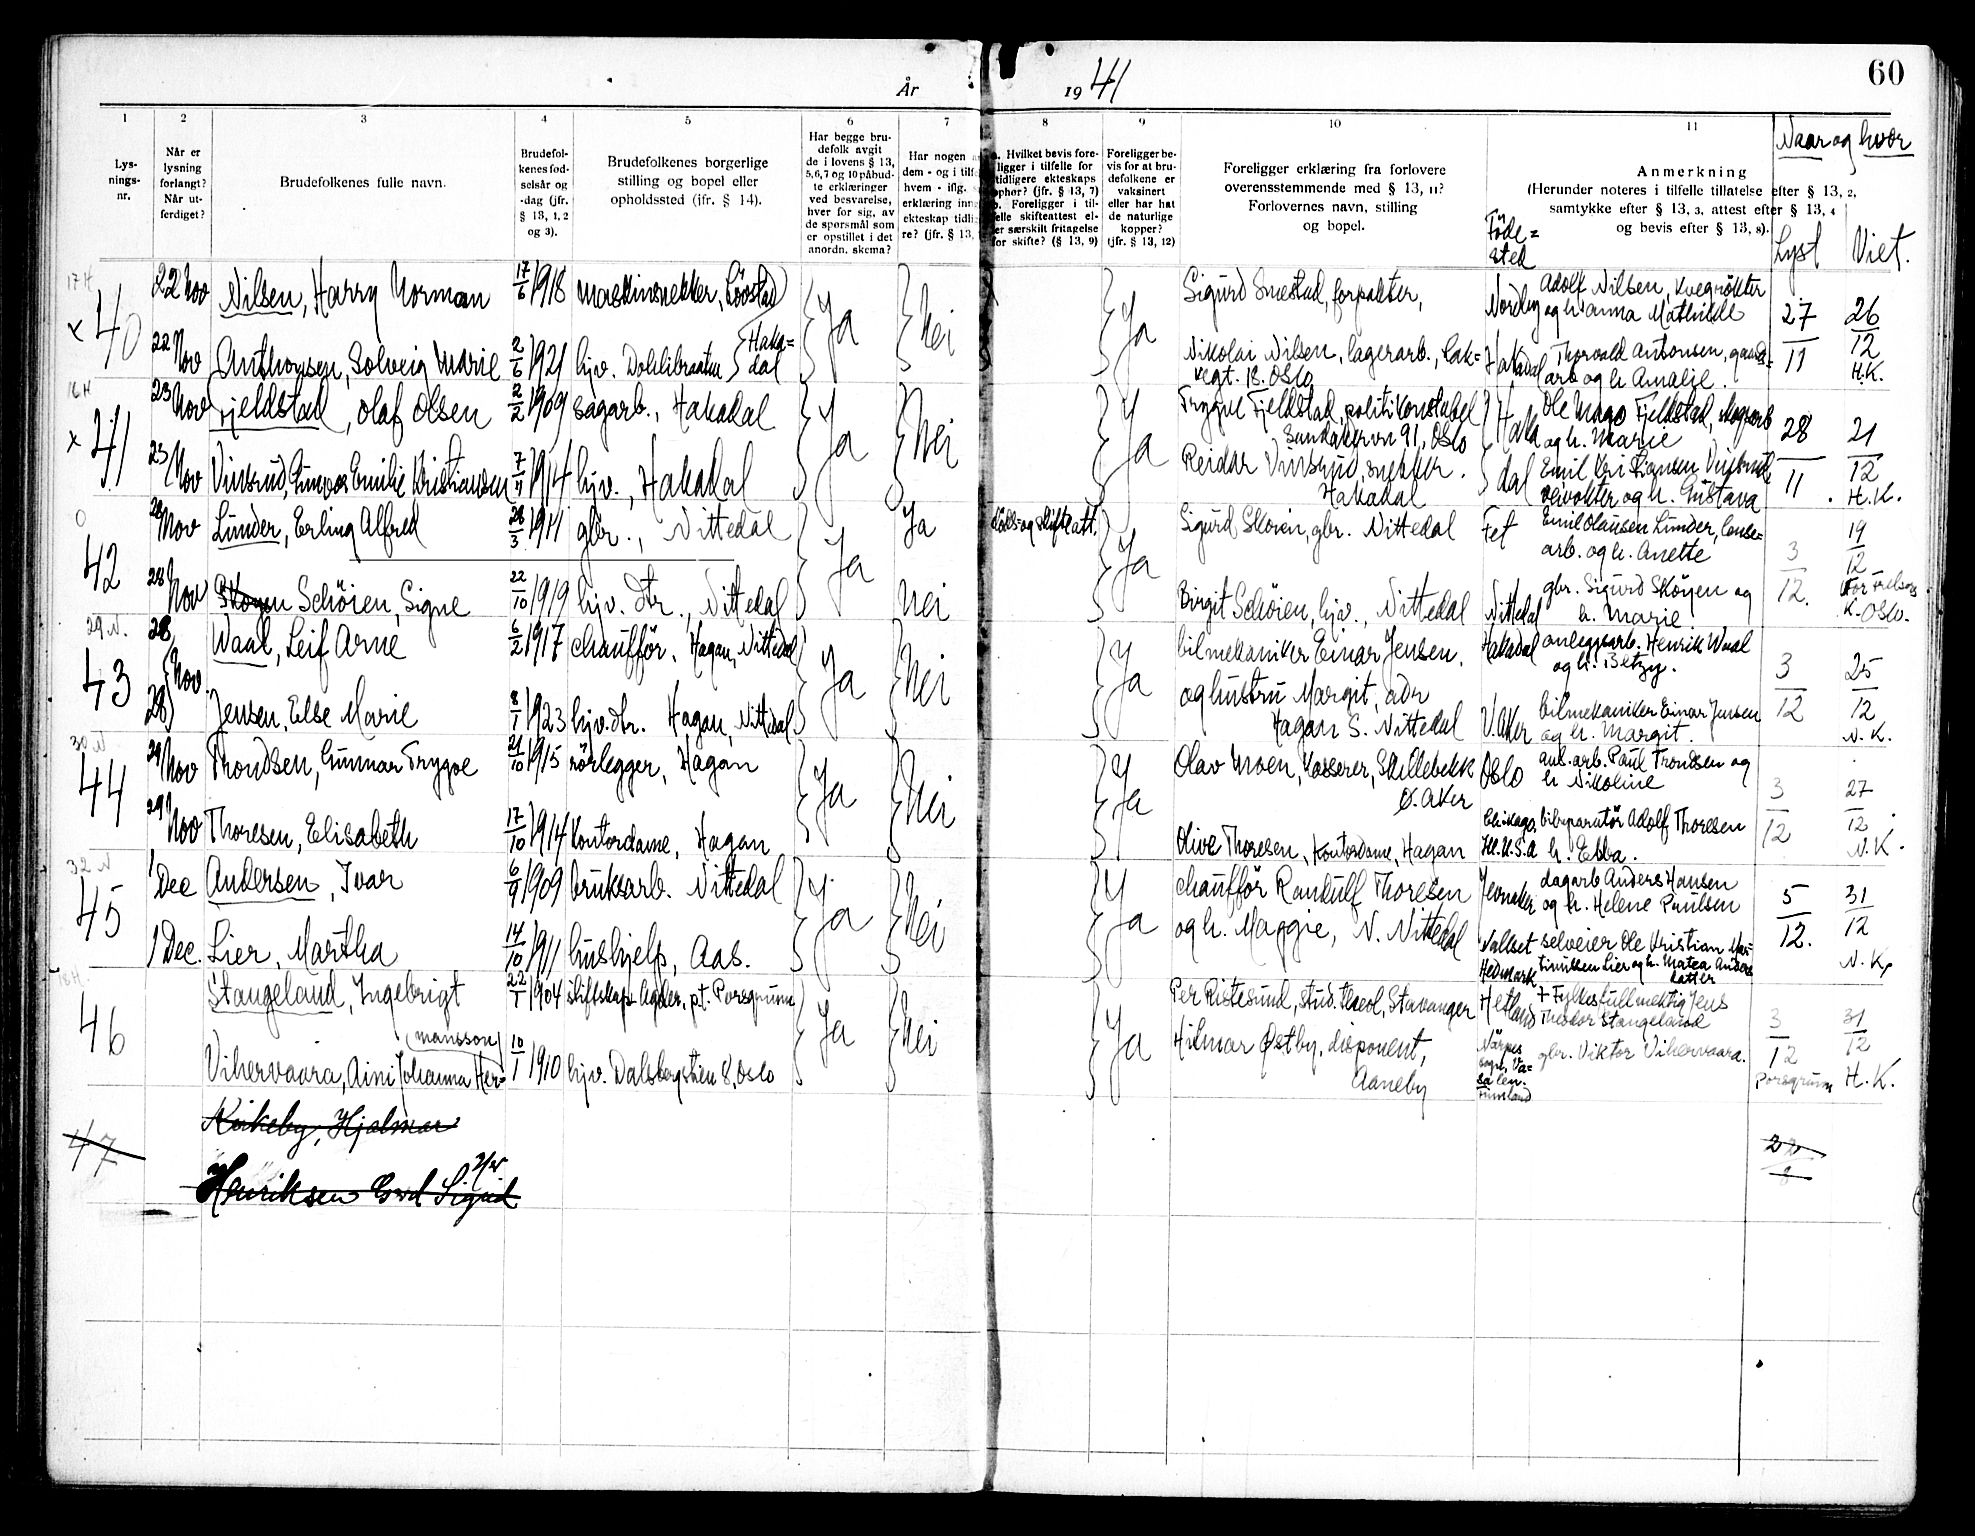 60
År 1941
1 2 3 4 5 6 7 8 9 10 11
Lys-
nings-
nr.
Når er
lysning
forlangt?
Når ut-
ferdiget?
Brudefolkenes fulle navn.
Brudefol-
kenes fød-
selsår og
-dag (jfr.
§ 13, 1, 2
og 3).
Brudefolkenes borgerlige
stilling og bopel eller
opholdssted (jfr. § 14).
Har begge bru-
defolk avgit
de i lovens § 13,
5, 6, 7 og 10 påbud-
te erklæringer
ved besvarelse,
hver for sig, av
de spørsmål som
er opstillet i det
anordn. skema?
Har nogen
dem - og i tilf
hvem - iflg.
erklæring inn
ekteskap tidli
re? (jfr. § 13,
Hvilket bevis fore-
ligger i tilfelle for
tidligere ekteskaps
ophør? (jfr. § 13, 7)
Foreligger i til-
felle skifteattest el-
er særskilt fritagelse
for skifte? (§ 13, 9)
Foreligger be-
vis for at bru-
defolkene er
vaksinert
eller har hat
de naturlige
kopper?
(jfr. § 13, 12)
Foreligger erklæring fra forlovere
overensstemmende med § 13, 11?
Forlovernes navn, stilling
og bopel.
Anmerkning
(Herunder noteres i tilfelle tillatelse efter § 13, 2,
samtykke efter § 13, 3, attest efter § 13, 4
og bevis efter § 13, 8).
Føde=
sted
Naar og hvor
Lyst Viet.
17 H
x 40 22 Nov Nilsen, Harry Norman 17/6 1918 maskinsnekker, Ja Nei Ja Sigurd Smestad, forpakter, Nordby Adolf Nilsen, kvegrøkter
og h. Anna Mathilde 27/11 26/12 H.K.
22 Nov Anthonsen, Solveig Marie 2/6 1921 hjv. Hakadal Nikolai Nilsen, lagerarb., Oslo Hakadal Thorvald Antonsen,
arb og h. Amalie.
16 H
x 41 23 Nov Fjeldstad, Olaf Olsen 2/2 1909 sagarb., Hakadal Ja Nei Ja Trygve Fjeldstad, politikonstabel
Sandakervn 91, Oslo Hakadal Ole Fjeldstad, skogarb
og h. Marie 28/11. 21/12 H.K.
23 Nov Vinsrud, Gunvor Emilie Kristiansen 7/11 1914 hjv., Hakadal Reidar Vinsrud, snekker.
Hakadal Emil Kristiansen Vinsrud
veivokter og h. Gustava
0
42 28 Nov Linder, Erling Alfred 28/3 1911 gbr., Nittedal Ja Ja Døds- og skifteatt. Ja Sigurd Skøien, gbr. Nittedal Fet Emil Olausen Linder,
arb. og h. Anette 3/12. 19/12 Vor Frelsers
K. Oslo.
28 Nov Skøyen Schöien, Signe 22/10 1919 hjv. dtr., Nittedal Nei Birgit Schöien, hjv., Nittedal Nittedal gbr. Sigurd Skøyen og
h. Marie.
29 N.
43 28 Nov. Waal, Leif Arne 6/2 1917 chaufför, Hagan, Nittedal Ja Nei Ja bilmekaniker Einar Jensen. Hakadal anleggsarb. Henrik Waal
og h. Betzy. 3/12 25/12 N.K.
28 Jensen, Else Marie 8/1 1923 hjv. dtr. Hagan, Nittedal. og hustru Margit, adr
Hagan S. Nittedal V. Aker bilmekaniker Einar Jensen
og h. Margit.
30 N
44 29 Nov Trondsen, Gunnar Trygve 21/10 1915 rörlegger, Hagan Ja Nei Ja Olav Moen, kasserer, Skillebekk
Ø. Aker Oslo anl. arb. Paul Trondsen og
h. Nikoline 3/12 27/12 N.K.
29 Nov Thoresen, Elisabeth 17/10 1914 kontordame, Hagan Olive Thoresen, kontordame, Hagan Chikago, U.S.A bilreparatör Adolf Thoresen
h. Ebba.
32 N
45 1 Dec Andersen, Ivar 6/9 1909 bruksarb. Nittedal Ja Nei Ja chaufför Randulf Thoresen Jevnaker dagarb Anders Hansen
og h. Helene Paulsen 5/12. 31/12 N.K.
1 Dec. Lier, Martha 14/10 1911 hushjelp, Aas. og h. Maggie, N. Nittedal Vallset
Hedmark selveier Ole Kristian Mar-
tinussen Lier og h. Matea Anders
datter
18 H.
46 Stangeland, Ingebrigt 22/1 1904 skiftskap. Agder, pt. Porsgrunn Ja Nei Ja Per Ristesund, stud. theol, Stavanger Hetland † Fylkesfullmektig Jens
Theodor Stangeland 3/12 Porsgrunn 31/12 H.K.
Vihervaara, Aini Johanna Her-
mansson 10/1 1910 hjv. Dalsbergstien 8, Oslo Hilmar Østby, disponent,
Aaneby Närpes
Finnland gbr. Viktor Vihervaara.
47 Kirkeby, Hjalmar
Henriksen Gerd Sigrid